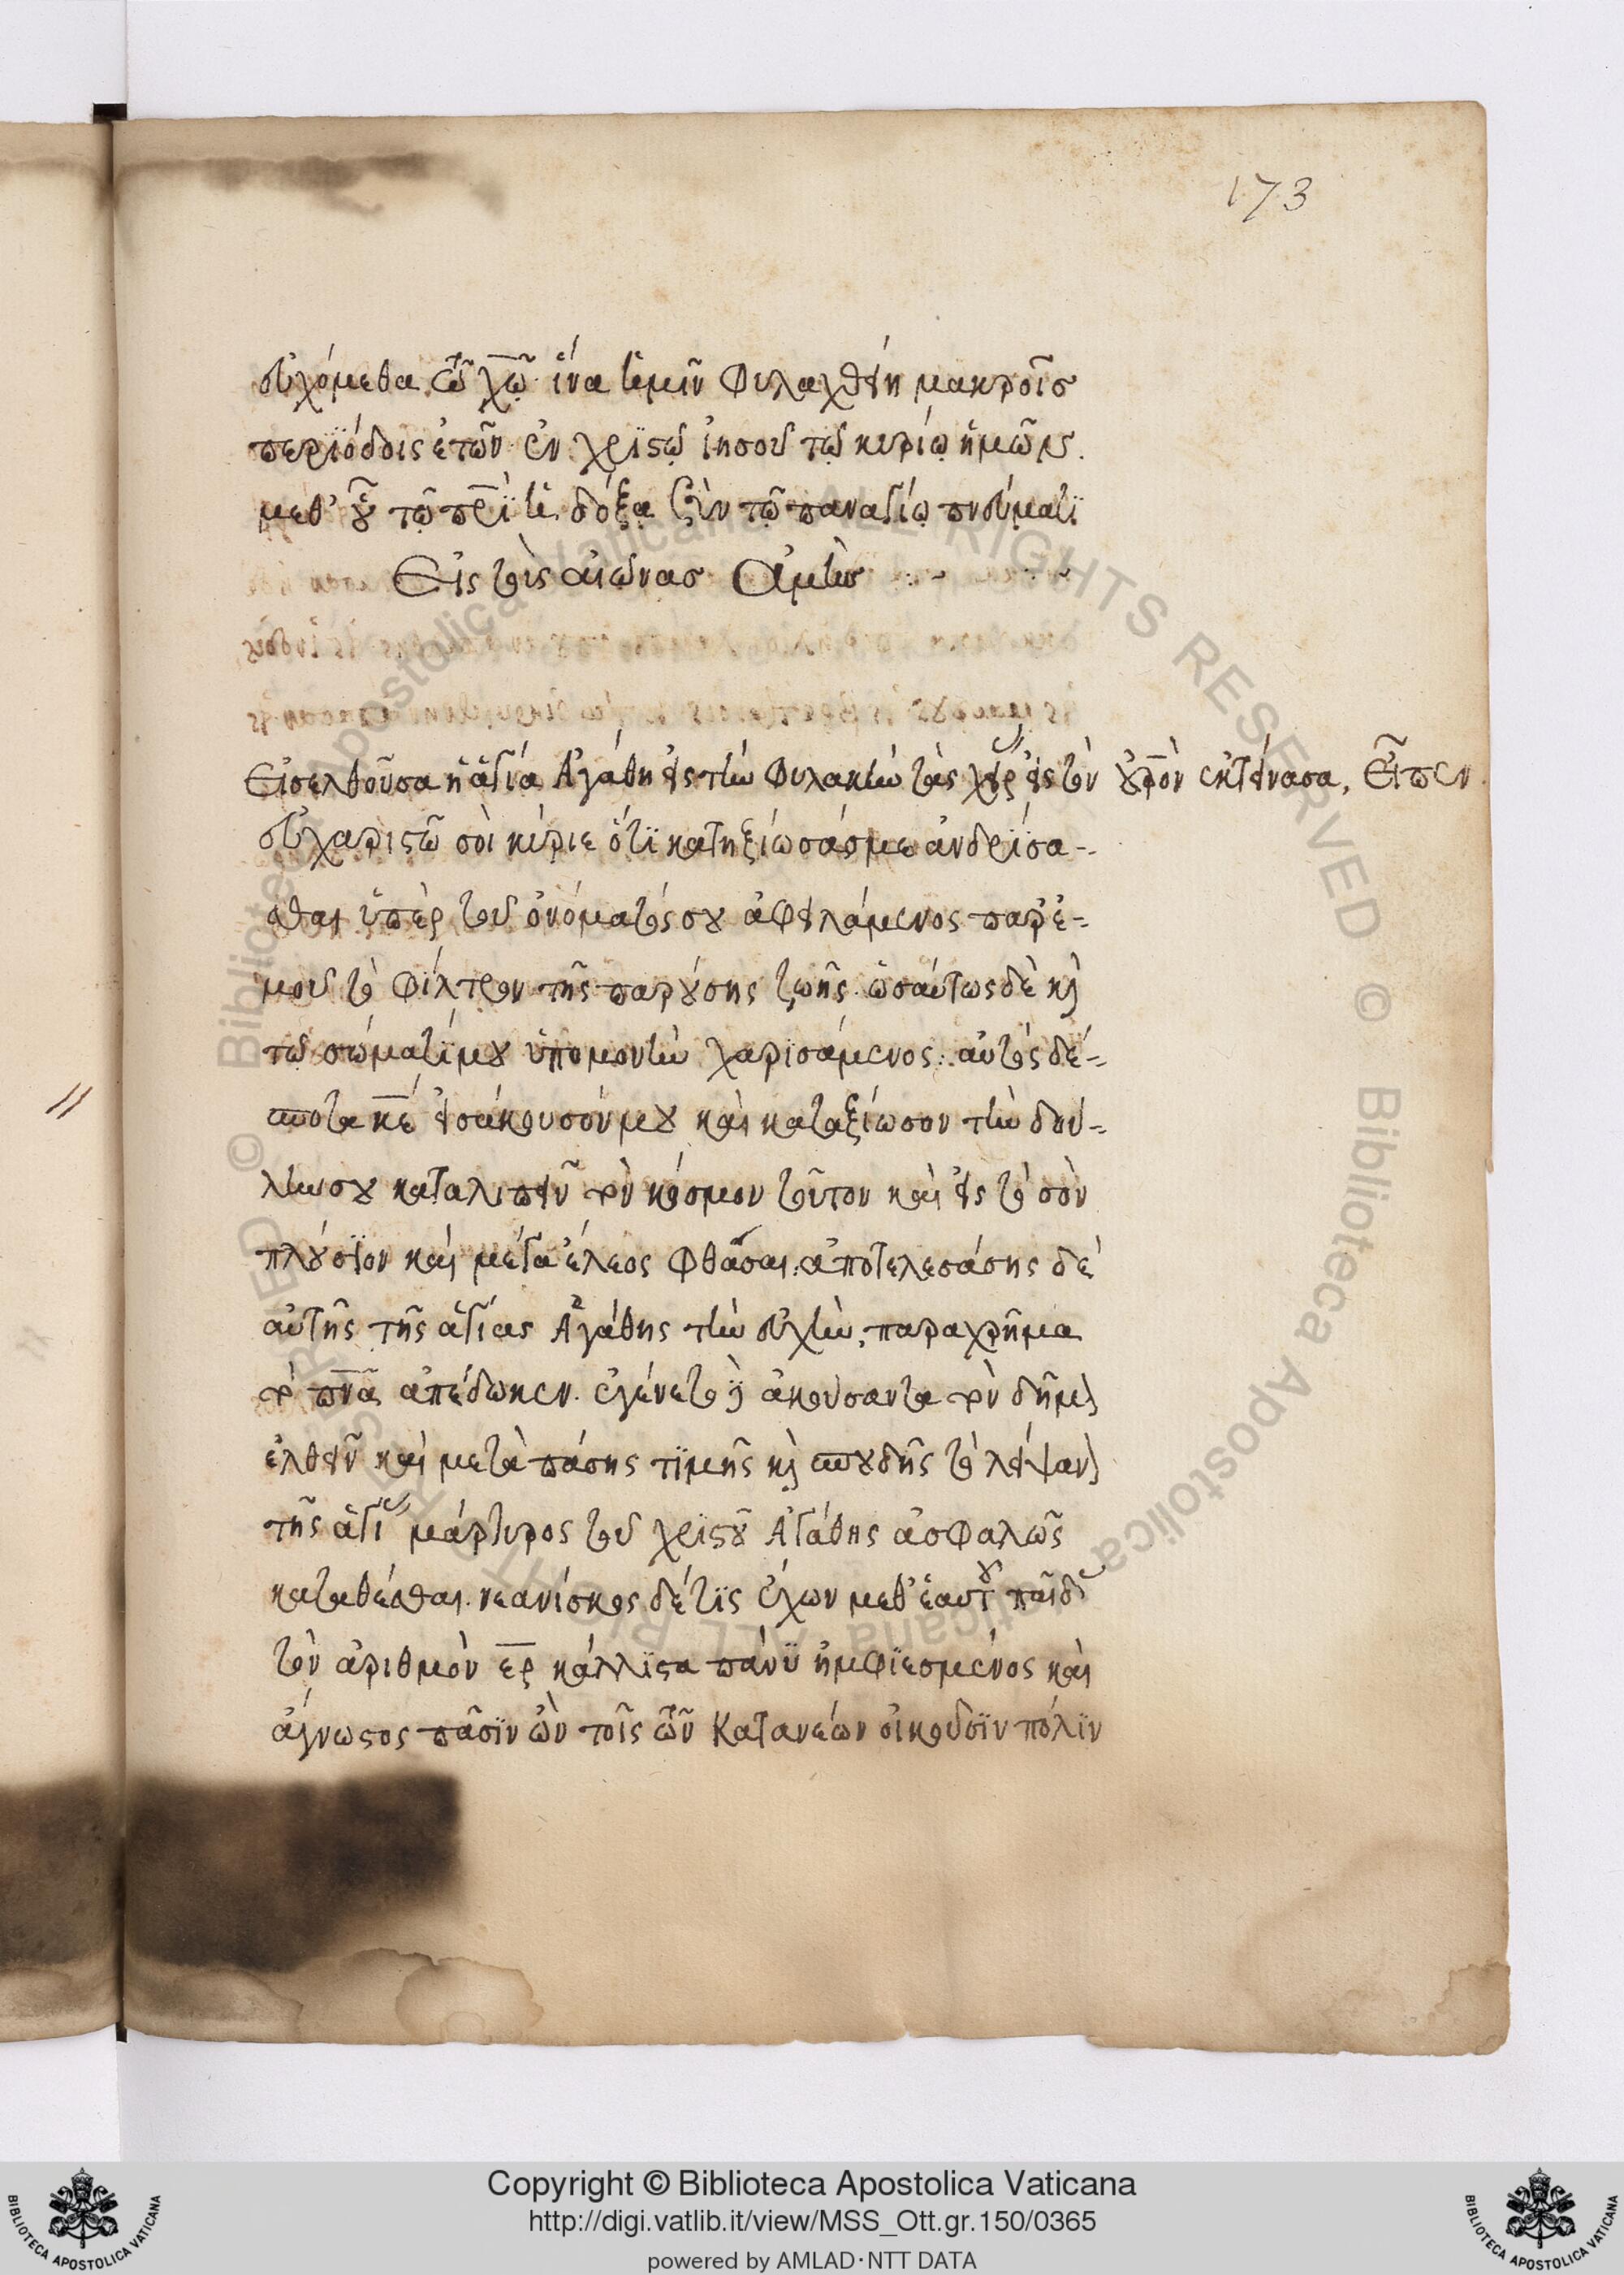 173
εὐχόμεθα τῶ χῶ ἵνα ὑμῖν φυλαχθείη μακροῖς
περϊόδοις ἐτῶν ἐν χρϊστῷ ἰησοῦ τῷ κυρίῳ ἡμῶν.
μεθ' οὗ τῷ πρϊ ἡ δόξα σὺν τῷ παναγίῳ πνεύματϊ
Εἰς τοὺς αἰώνας Ἀμὴν
Εἰσελθοῦσα ἡ ἁγία Ἀγάθη εἰς τὴν φυλακὴν τὰς χεῖρας εἰς τὸν οὐρνὸν ἐκτείνασα, Εἶπεν
εὐχαριστῶ σοὶ κύριε ὅτϊ κατηξίωσάς με ἀνδρϊσα-
σθαι ὑπὲρ τοῦ ὀνόματός σου ἀφειλάμενος παρ' ἐ-
μοῦ τὸ φίλτρον τῆς παρούσης ζωῆς. ὡσαύτως δὲ κὶ
τῷ σώματί μου ὑπομονὴν χαρισάμενος. αὐτὸς δέ-
σποτα κέ εἰσάκουσόν μου καὶ καταξίωσον τὴν δού-
λην σου καταλιπεῖν τὸν κόσμον τοῦτον καὶ εἰς τὸ σὸν
πλούσϊον καὶ μέγα ἔλεος φθᾶσαι. ἀποτελεσάσης δὲ
αὐτῆς τῆς ἁγίας Ἀγάθης τὴν εὐχὴν, παραχρῆμα
τὸ πνᾶ ἀπέδωκεν. ἐγένετο δὲ ἀκούσαντα τὸν δῆμον
ἐλθεῖν καὶ μετὰ πάσης τϊμῆς κὶ σπουδῆς τὸ λείψανον
τῆς ἁγίας μάρτυρος τοῦ χρϊστοῦ Ἀγάθης ἀσφαλῶς
καταθέσθαι. νεανίσκος δέ τϊς ἔχων μεθ' ἑαυτοῦ παῖδας
τὸν ἀριθμὸν ερ κάλλϊστα πάνϋ ἠμφϊεσμένος καὶ
ἄγνωστος πᾶσϊν ὢν τοῖς τῶν Κατανείων οἰκοῦσϊν πόλϊν
Copyright © Biblioteca Apostolica Vaticana
http://digi.vatlib.it/view/MSS_Ott.gr.150/0365
powered by AMLAD·NTT DATA